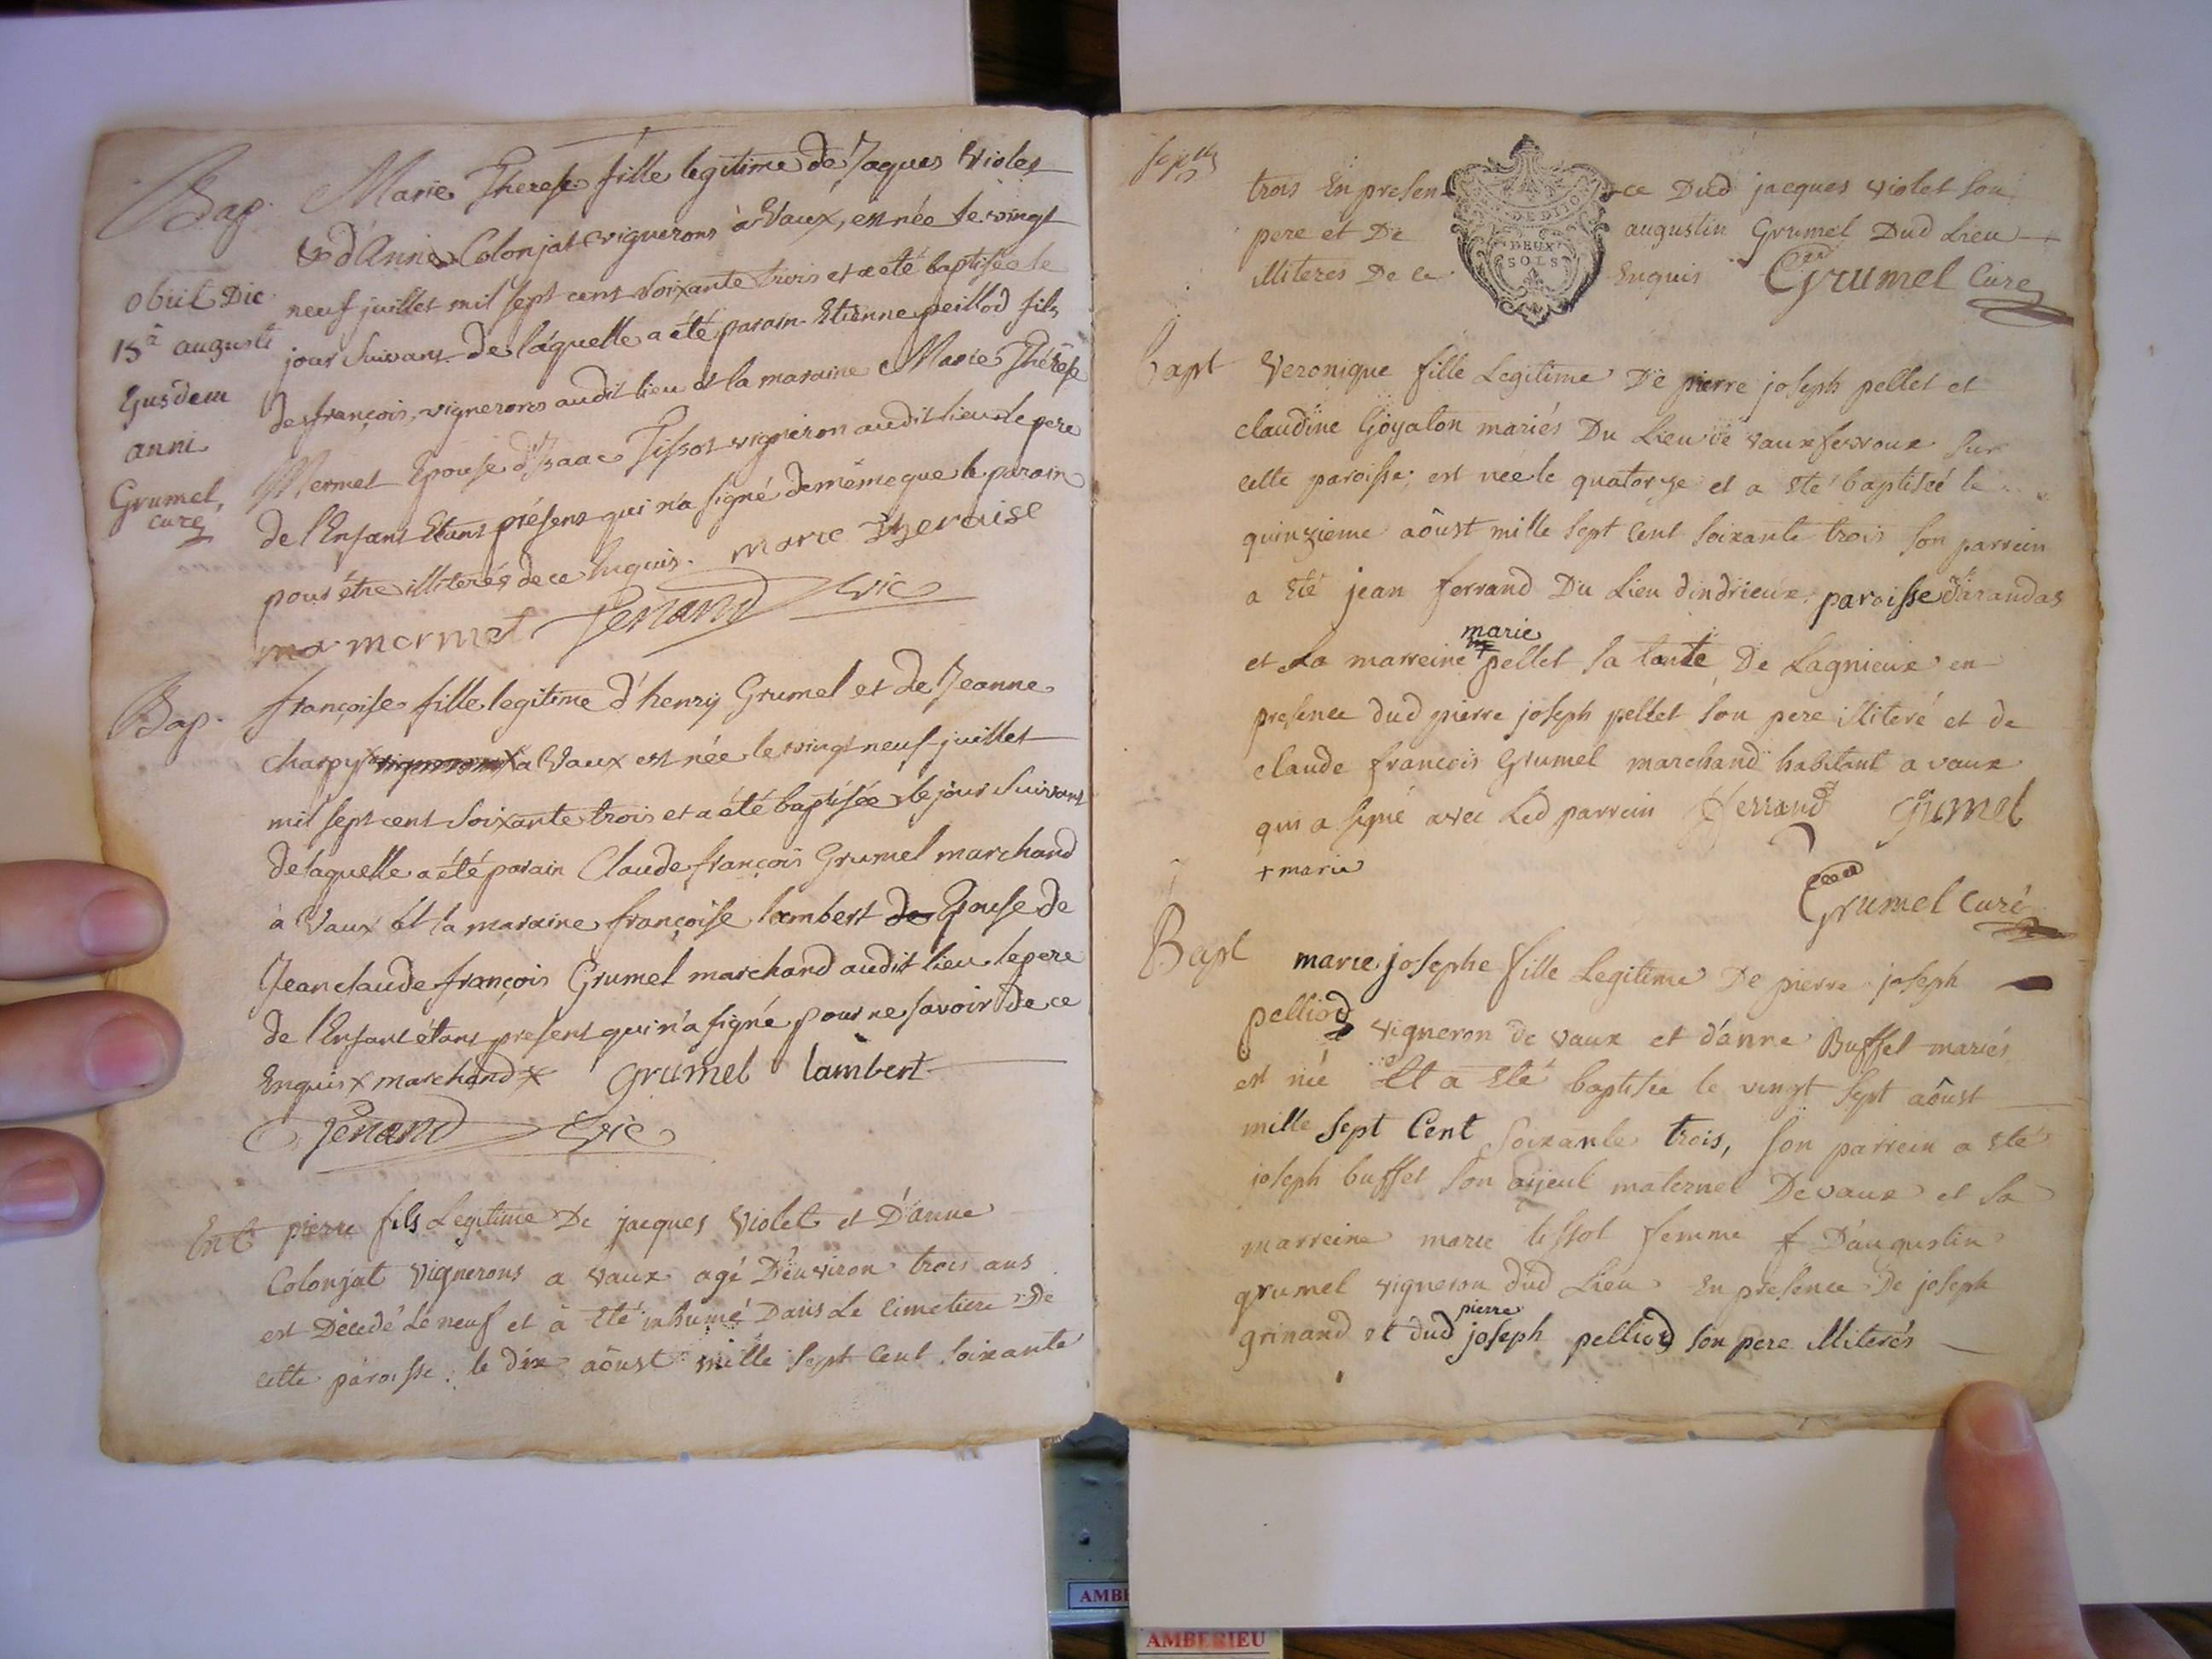 Bap. Marie Therese fille legitime de Jaques Violet
& d'Anne Colonjat vignerons à Vaux, est née le vingt
neuf juillet mil sept cent soixante trois et a eté baptisée le
jour suivant de laquelle a été parain Etienne peillod fils
de françois, vignerons audit lieu et la maraine Marie Thérèse
Mermet Epouse d'Isaac Tissot vigneron audit lieu le pere
de l'Enfant Etant présent qui n'a signé de même que le parain
pour être illiterés de ce Enquis. marie Theraise
mermet ferrand vic
obiit Die
15a augusti
Ejusdem
anni
Grumel,
curé
Bap. françoise fille legitime d'henry Grumel et de Jeanne
charpy x vignerons x a Vaux est née le vingt neuf juillet
mil sept cent soixante trois et a été baptisée le jour suivant
de laquelle a été parain Claude françois Grumel marchand
à Vaux et la maraine françoise lambert de Epouse de
Jean claude françois Grumel marchand audit lieu le pere
de l'Enfant étant present qui n'a signé pour ne savoir de ce
Enquis x marchand x Grumel lambert
ferrand vic
Ent pierre fils Legitime De jacques Violet et D'anne
Colonjat vignerons a vaux agé D'environ trois ans
est Décedé Le neuf et à Eté inhumé Dans Le Cimetiere De
cette paroisse le dix aôust mille sept cent soixante
trois En presen-ce Dud jacques violet son
pere et De augustin Grumel Dud Lieu
illiteres De ce Enquis Grumel Curé
DE DIJO
DEUX
SOLS
bapt Veronique fille Legitime De pierre joseph pellet et
claudine Goyaton mariés Du Lieu de vauxfevroux sur
cette paroisse; est née le quatorze et a eté baptiséé le
quinzieme aôust mille sept cent soixante trois son parrein
a eté jean ferrand Du Lieu dindrieux paroisse d'arandas
marie
et La marreine + pellet sa tante De Lagnieux en
presence dud pierre joseph pellet son pere illiteré et de
claude francois Grumel marchand habitant a vaux
qui a signé avec Led parrein ferrand grumel
+ marie
Grumel Curé
Bapt marie josephe fille Legitime De pierre joseph
pelliod vigneron de vaux et d'anne Buffet mariés
est née Et a Eté baptisée le vingt sept aôust
mille sept Cent soixante trois, son parrein a eté
joseph buffet son aijeul maternel De vaux et sa
marreine marie tissot femme D'augustin
grumel vigneron dud Lieu En presence De joseph
pierre
grinand et dud joseph pelliod son pere illiterés
AMBERIEU